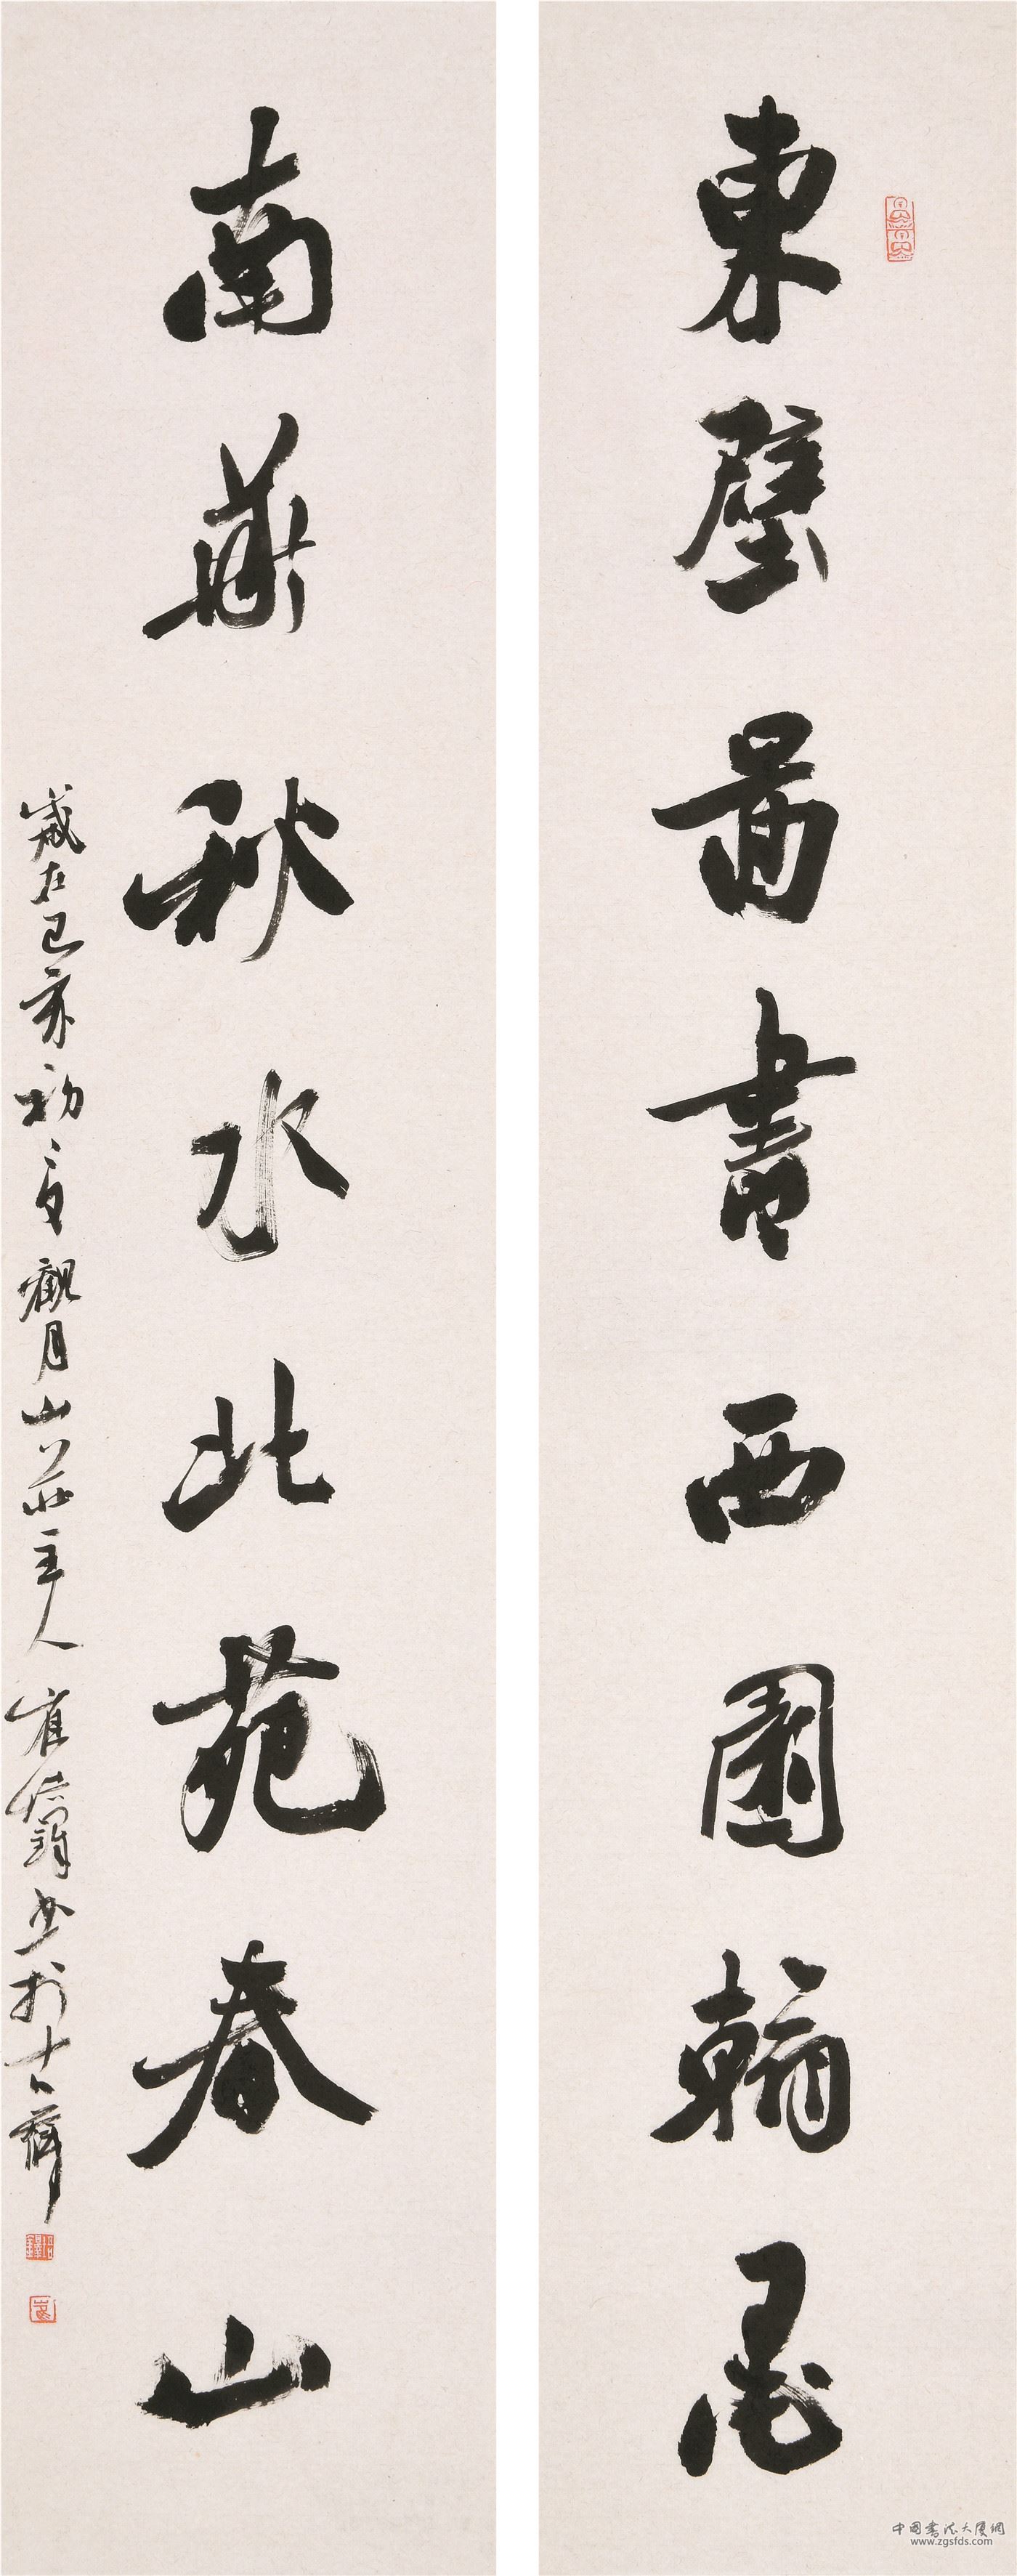 東壁圖書西園翰墨
南華秋水北苑春山
歲在己亥初夏觀月山莊主人崔
書於
中国书法大厦网
www.zgsfds.com